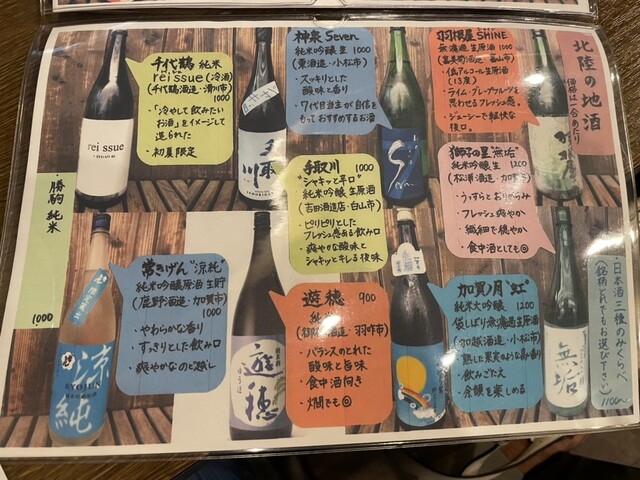 北陸の地酒
価格は一合あたり
羽根屋 SHINE
無濾過生原酒 1000
(富美菊酒造・富山市)
・低アルコール生原酒
(13度)
・ライム・グレープフルーツを
思わせるフレッシュ感。
・ジューシーで軽快な
後口。
神泉 Seven
純米吟醸 生 1000
(東酒造・小松市)
・スッキリとした
酸味と香り
・7代目当主が自信を
もっておすすめするお酒
千代鶴 純米
rei ssue (冷酒)
(千代鶴酒造・滑川市)
1000
・「冷やして飲みたい
お酒」をイメージして
造られた
・初夏限定
獅子の里"無垢"
純米吟醸 生 1200
(松浦酒造・加賀市)
・うっすらとおりがらみ
・フレッシュ 爽やか
・繊細で穏やか
・食中酒としても◎
手取川 1000
"シャキッと辛口"
純米吟醸 生原酒
(吉田酒造店・白山市)
・ピリピリとした
フレッシュ感ある飲み口
・爽やかな酸味と
シャキッとキレる後味
・勝駒 純米
1000
常きげん"涼純"
純米吟醸原酒 生貯
(鹿野酒造・加賀市)
1000
・やわらかな香り
・すっきりとした飲み口
・爽やかなのど越し
遊穂 900
純米
(御祖酒造・羽咋市)
・バランスのとれた
酸味と旨味
・食中酒向き
・燗でも◎
加賀ノ月"虹"
純米大吟醸 1200
袋しぼり無濾過生原酒
(加越酒造・小松市)
・熟した果実のような香り
・飲みごたえ
・余韻を楽しめる
・日本酒三種のみくらべ
(銘柄どれでもお選び下さい)
1100
rei ssue
手取川
涼純
RYOJUN
遊穂
ゆうほ
無垢